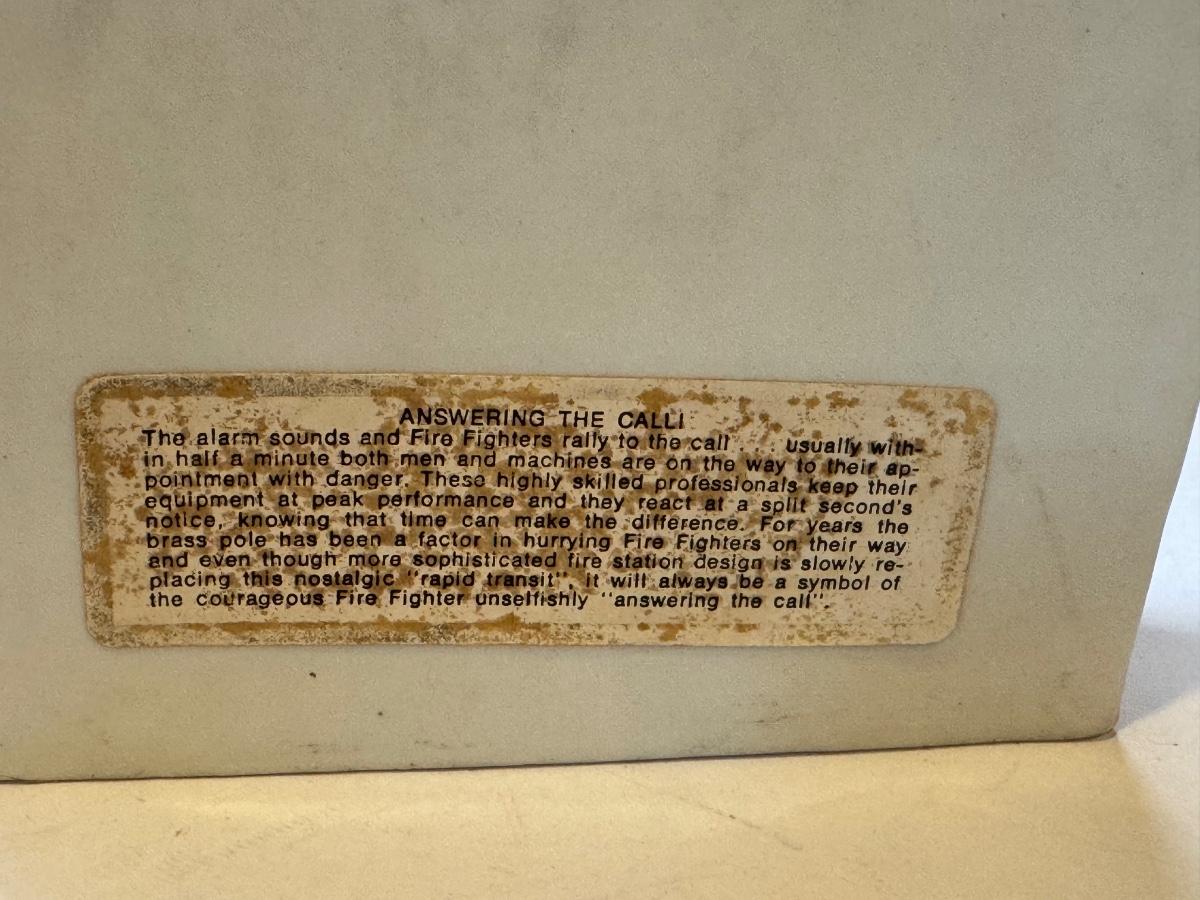 ANSWERING THE CALL!
The alarm sounds and Fire Fighters rally to the call . . . usually with-
in half a minute both men and machines are on the way to their ap-
pointment with danger. These highly skilled professionals keep their
equipment at peak performance and they react at a split second's
notice, knowing that time can make the difference. For years the
brass pole has been a factor in hurrying Fire Fighters on their way
and even though more sophisticated fire station design is slowly re-
placing this nostalgic "rapid transit", it will always be a symbol of
the courageous Fire Fighter unselfishly "answering the call".